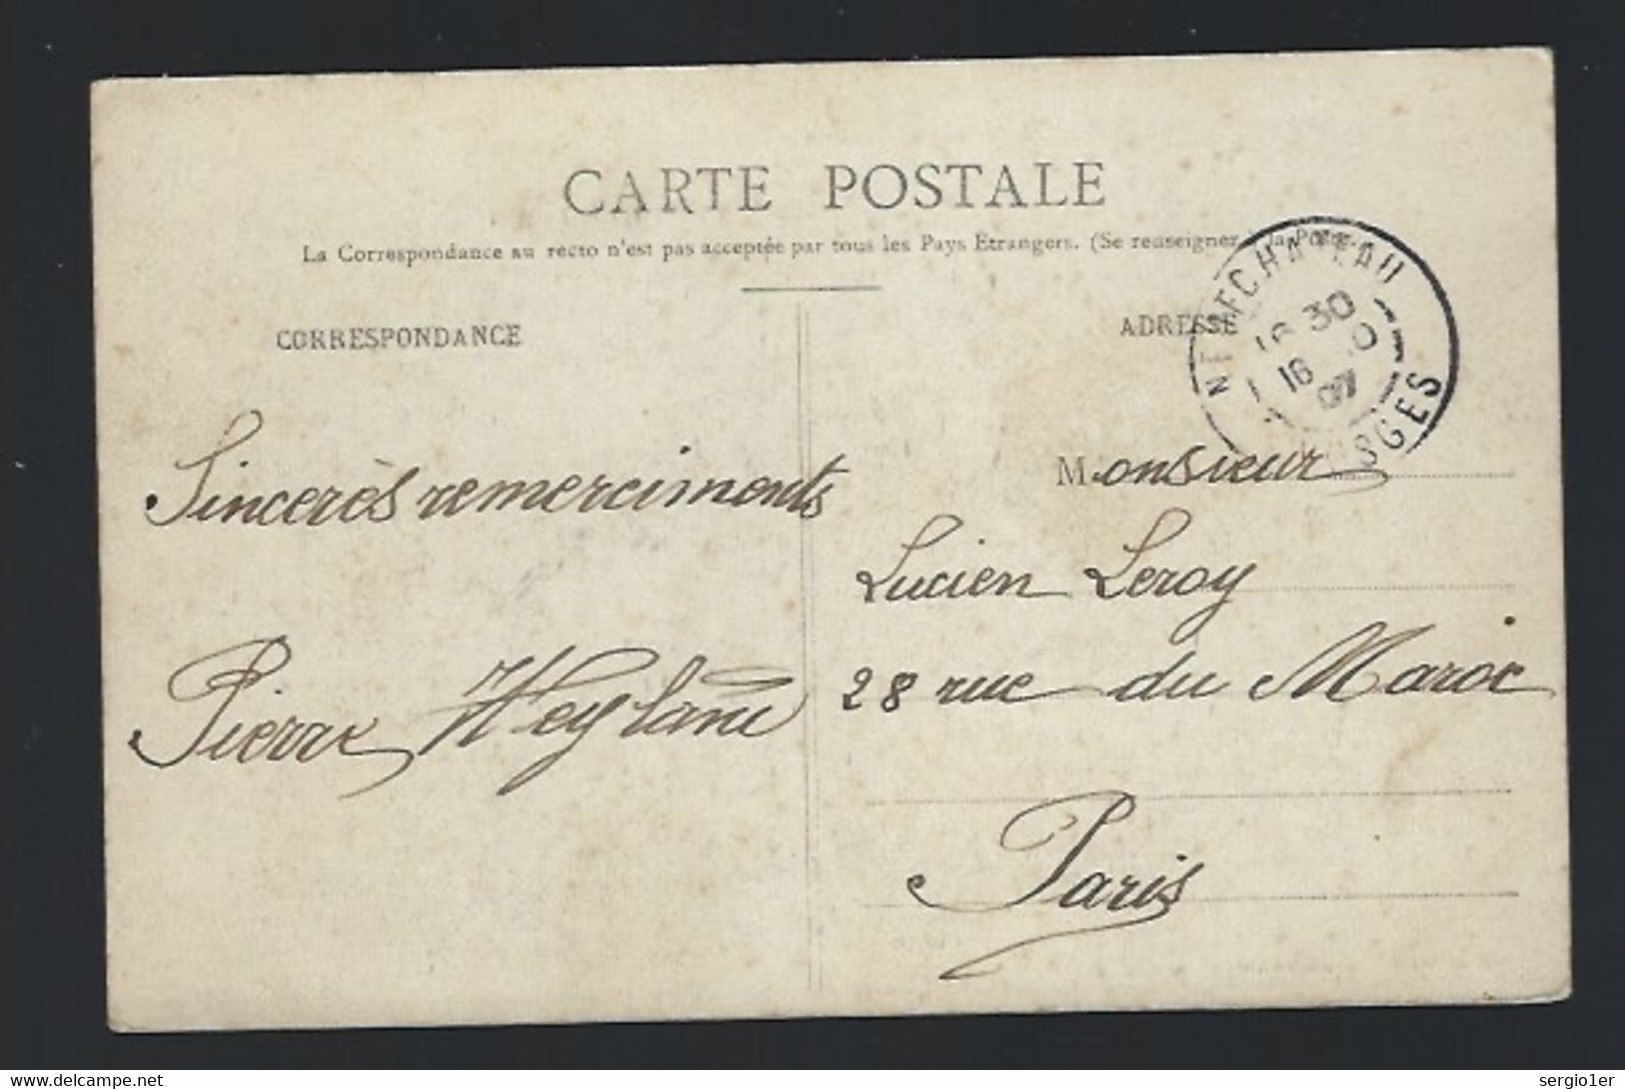 CARTE POSTALE
La Correspondance au recto n'est pas acceptée par tous les Pays Etrangers. (Se renseigner à la Poste.)
CORRESPONDANCE
ADRESSE
NEUFCHATEAU
16 30
16 10
07
VOSGES
Sincerès remerciments
Pierre
Monsieur
Lucien Leroy
28 rue du Maroc
Paris
delcampe.net
sergio1er